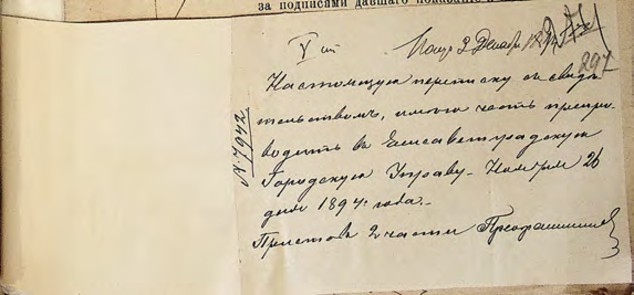 за подписями давшаго показанie и
V ст
Пол. 3 Декабр 189
291
№ 7942
Настоящую переписку съ свидѣ
тельствомъ, имѣю честь препро
водить въ Елисаветградскую
Городскую Управу. Ноября 26
дня 1894 года.
Приставъ 2 части